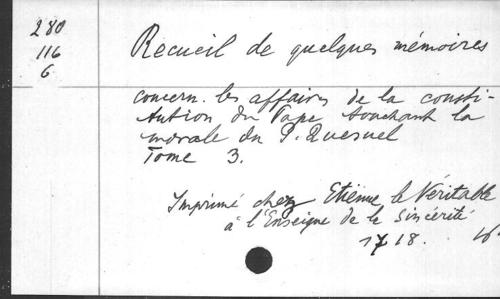 280
116
6
Recueil de quelques mémoires
concern. les affaires de la consti-
tution du Pape touchant la
morale du P. Quesnel
Tome 3.
Imprimé chez Etiënne le Véritable
à l'Enseigne de la Sincérité
1718. 16°